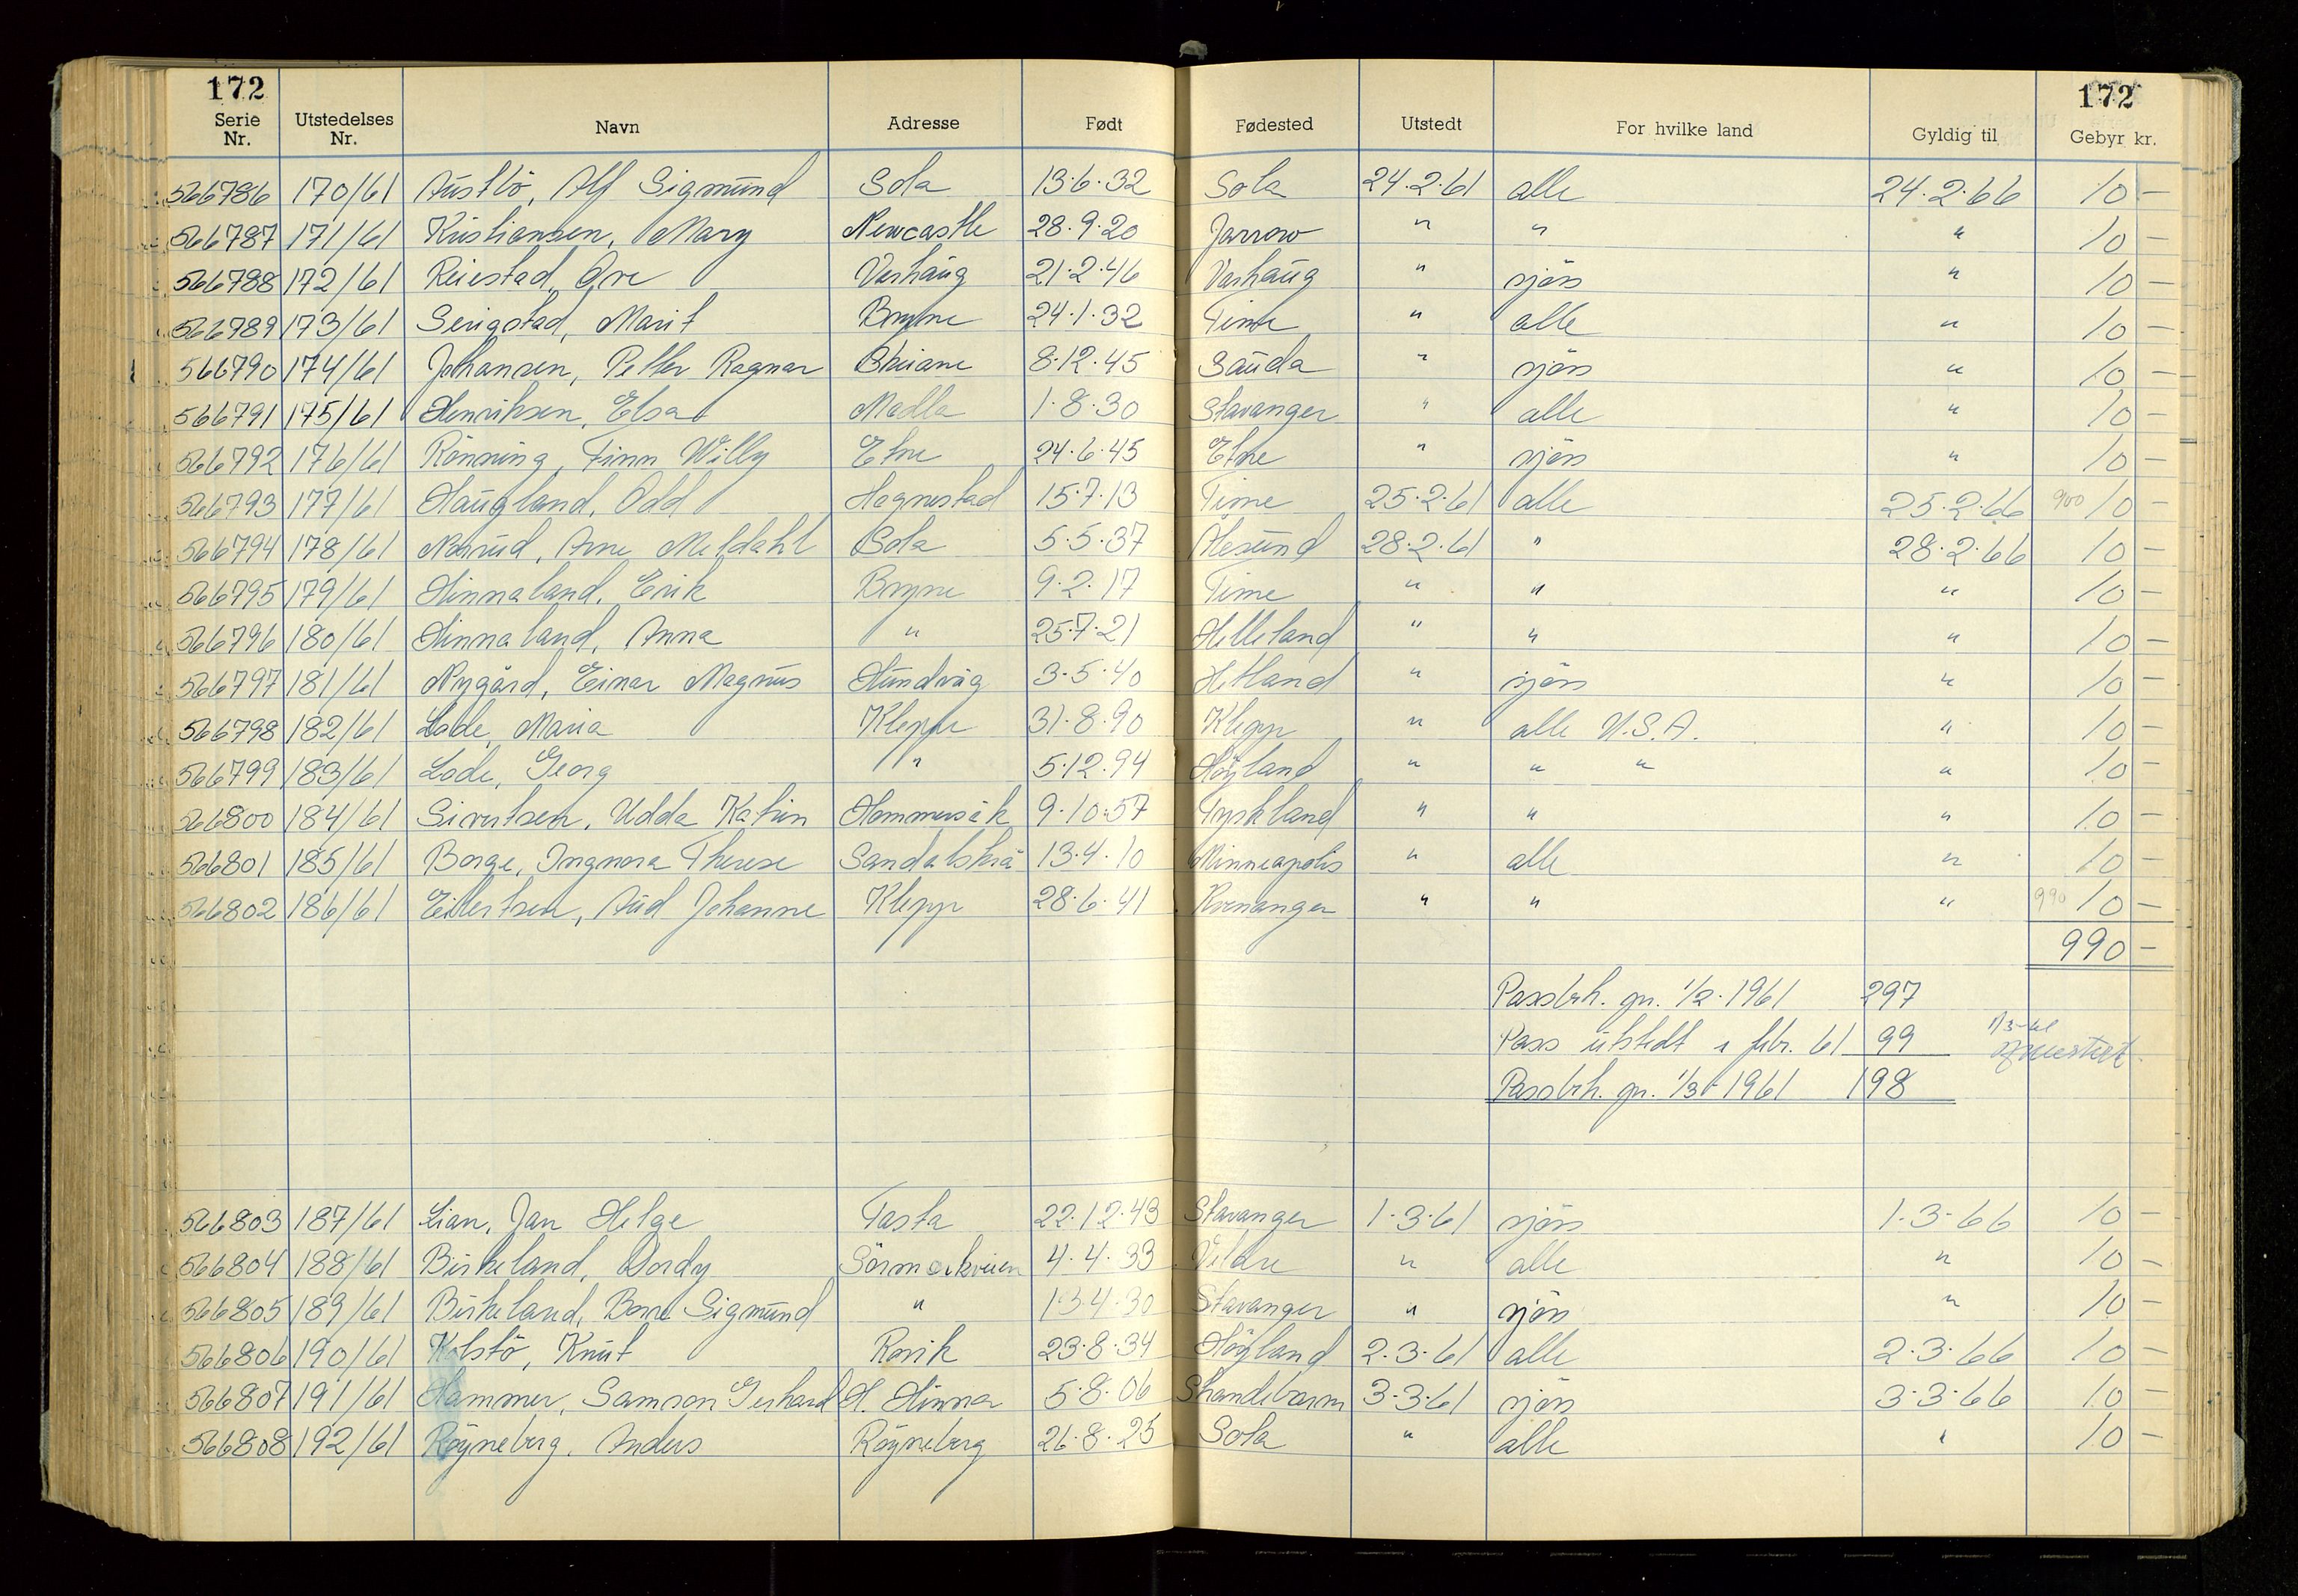 172 172
Serie Nr. Utstedelses Nr. Navn Adresse Født Fødested Utstedt For hvilke land Gyldig til Gebyr kr.
566786 170/61 Austbö, Alf Sigmund Sola 13.6.32 Sola 24.2.61 alle 24.2.66 10 -
566787 171/61 Kristiansen, Mary Newcastle 28.9.20 Jarrow " " " 10 -
566788 172/61 Reiestad, Ove Varhaug 21.2.46 Varhaug " sjøs " 10 -
566789 173/61 Serigstad, Marit Bryne 24.1.32 Time " alle " 10 -
566790 174/61 Johansen, Petter Ragnar 8.12.45 Sauda " sjøs " 10 -
566791 175/61 Henriksen, Elsa Madla 1.8.30 Stavanger " alle " 10 -
566792 176/61 Rönning, Finn Willy Etne 24.6.45 Etne " sjøs " 10 -
566793 177/61 Haugland, Odd Hognestad 15.7.13 Time 25.2.61 alle 25.2.66 900 10 -
566794 178/61 Arne Meldahl Sola 5.5.37 Ålesund 28.2.61 " 28.2.66 10 -
566795 179/61 Hinnaland, Erik Bryne 9.2.17 Time " " " 10 -
566796 180/61 Hinnaland, Anna " 25.7.21 Helleland " " " 10 -
566797 181/61 Nygård, Einar Magnus Hundvåg 3.5.40 Hetland " sjøs " 10 -
566798 182/61 Lode, Maria Klepp 31.8.90 Klepp " alle U.S.A. " 10 -
566799 183/61 Lode, Georg " 5.12.94 Höyland " " " " 10 -
566800 184/61 Sivertsen, Udda Katrin Hommersåk 9.10.57 Tyskland " " " 10 -
566801 185/61 Borge, Ingnora Therese 13.4.10 Minneapolis " alle " 10 -
566802 186/61 Eilertsen, Aud Johanne Klepp 28.6.41 " " " 990 10 -
990 -
Passbh. pr. 1/2-1961 297
Pass utstedt i febr. 61 99 1/3-61
Passbh. pr. 1/3-1961 198
566803 187/61 Lian, Jan Helge Tasta 22.12.43 Stavanger 1.3.61 sjøs 1.3.66 10 -
566804 188/61 Birkeland, Dordy Sörmarkveien 4.4.33 " alle " 10 -
566805 189/61 Birkeland, Sigmund " 13.4.30 Stavanger " sjøs " 10 -
566806 190/61 Kolstö, Knut 23.8.34 Höyland 2.3.61 alle 2.3.66 10 -
566807 191/61 Hammer, Samson Gerhard H. Hinna 5.8.06 Strandebarm 3.3.61 sjøs 3.3.66 10 -
566808 192/61 Röyneberg, Anders Röyneberg 26.8.25 Sola " alle " 10 -